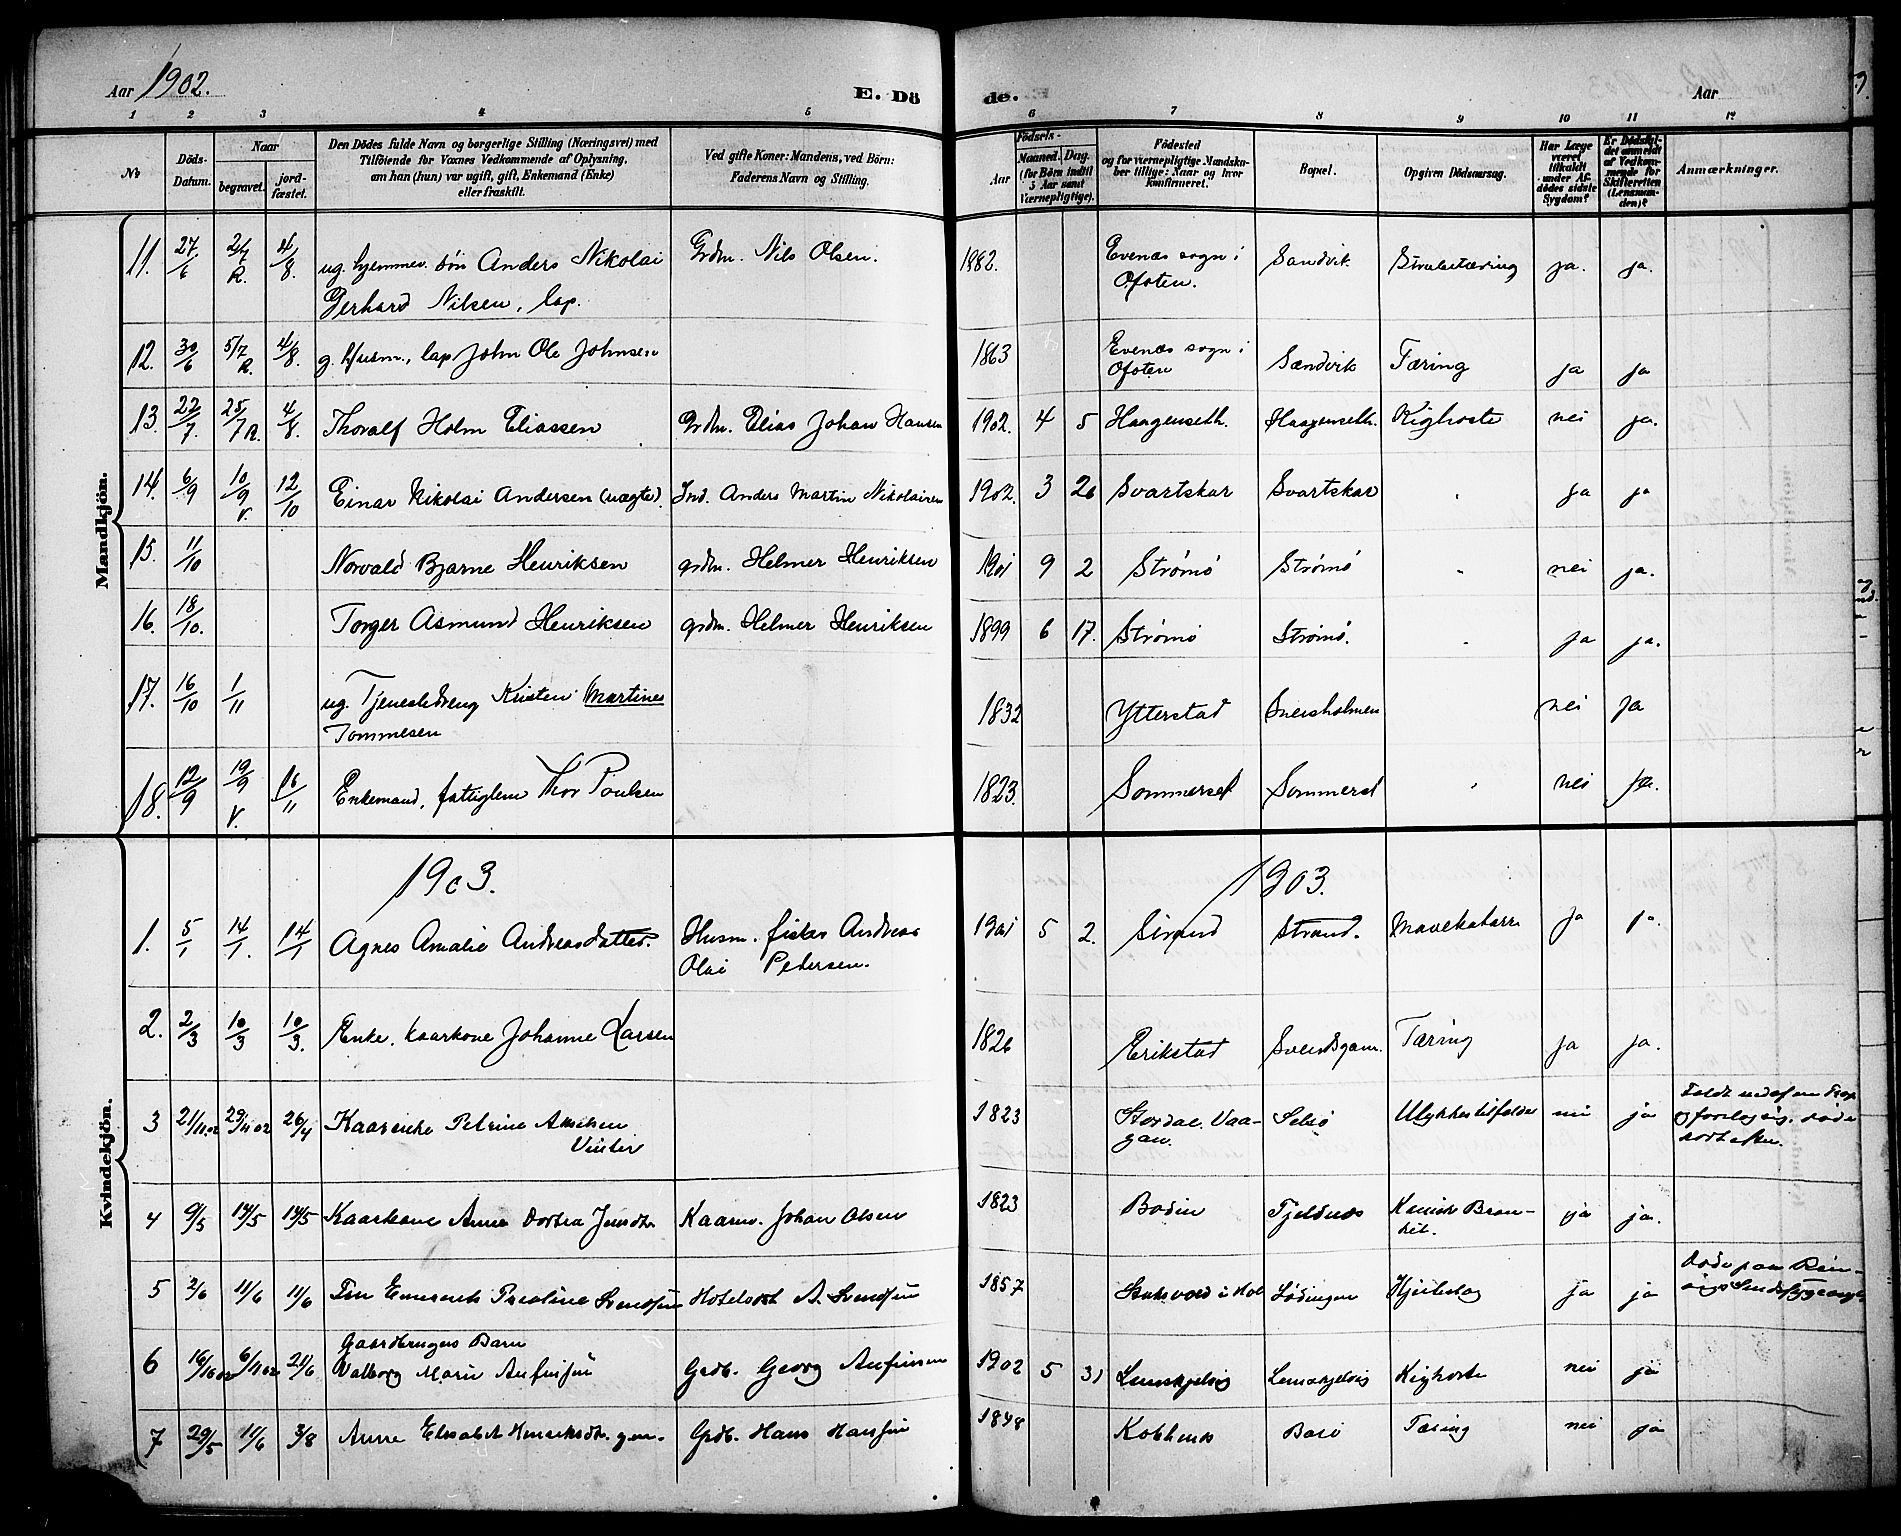 Aar 1902.
E. Dö
de.
Aar
1 2 3 4 5 6 7 8 9 10 11 12
No
Döds-
Datum.
Naar
begravet.
jord-
fæstet.
Den Dödes fulde Navn og borgerlige Stilling (Næringsvei) med
Tilföiende for Voxnes Vedkommende af Oplysning,
om han (hun) var ugift, gift, Enkemand (Enke)
eller fraskilt.
Ved gifte Koner: Mandens, ved Børn:
Faderens Navn og Stilling.
Födsels-
Aar
Maaned. Dag.
(for Börn indtil
5 Aar samt
Værnepligtige).
Födested
og for værnepligtige Mandskaber
tillige: Naar og hvor
konfirmeret.
Bopæl.
Opgiven Dödsaarsag.
Har Læge
været
tilkaldt
under Afdödes
sidste
Sygdom?
Er Dödsfaldet
anmeldt
af Vedkommende
for
Skifteretten
(Lensmanden)?
Anmærkninger.
Mandkjön.
11. 27/6 2/7 R. 4/8. ug. hjemmev. søn Anders Nikolai Grdm. Nils Olsen. 1882. Evenæs sogn i Sandvik Strubetæring ja. ja.
Gerhard Nilsen, lap. Ofoten.
12. 30/6 5/7 R. 4/8. g. husm., lap John Ole Johnsen 1863 Evenæs sogn i Sandvik Tæring ja ja
Ofoten
13. 22/7. 25/7 R. 4/8. Thoralf Holm Eliassen Grdm. Elias Johan Hansen 1902. 4 5 Haagenseth. Haagenseth. Kighoste nei ja.
14. 6/9 10/9 V. 12/10 Einar Nikolai Andersen (uægte). Ind. Anders Martin Nikolaisen 1902. 3 26 Svartskar Svartskar " ja ja
15. 11/10 Norvald Bjarne Henriksen grdm. Helmer Henriksen 1901 9 2 Strømø Strømø " nei ja.
16. 18/10. Torger Asmund Henriksen grdm. Helmer Henriksen 1899 6 17. Strømø Strømø. " ja ja.
17. 16/10 1/11 ug. Tjenestedreng Kristen Martines 1832 Ytterstad nei ja
Tommesen
18. 12/9 19/9 V. 16/11 Enkemand, fattiglem Thor Poulsen 1823. Sommerset Sommerset " nei ja.
Kvindekjön.
1903. 1903.
1. 5/1 14/1. 14/1 Agnes Amalie Andreasdatter. Husm. fisker Andreas 1901 5 2. Strand Strand. Mavekatarr ja ja.
Olai Petersen.
2. 2/3 10/3 10/3. Enke, kaarkone Johanne Larsen 1826 Erikstad Tæring ja ja.
3 21/11 02 29/11 02 26/4 Petrine 1823 Ulykkestilfælde nei ja
Vinter
4 9/5 14/5 14/5 Kaarkone Anne Dortea Kaarm. Johan Olsen 1823 Bodin Tjeldnes Kronisk Bron- ja ja.
kit.
5 2/6 11/6 11/6 A. Svendsen 1857 Lødingen Hjerteslag ja ja
Gaardbrugers Barn
6 16/10 02 6/11 02 21/6 Valborg Marie Anfinsen Grdb. Georg Anfinsen 1902 5 31 Kighoste nei ja
7 29/5 11/6 3/8 Anne Elisabet Henriksdtr. Grdb. Hans Hansen 1848 Barø Tæring nei ja